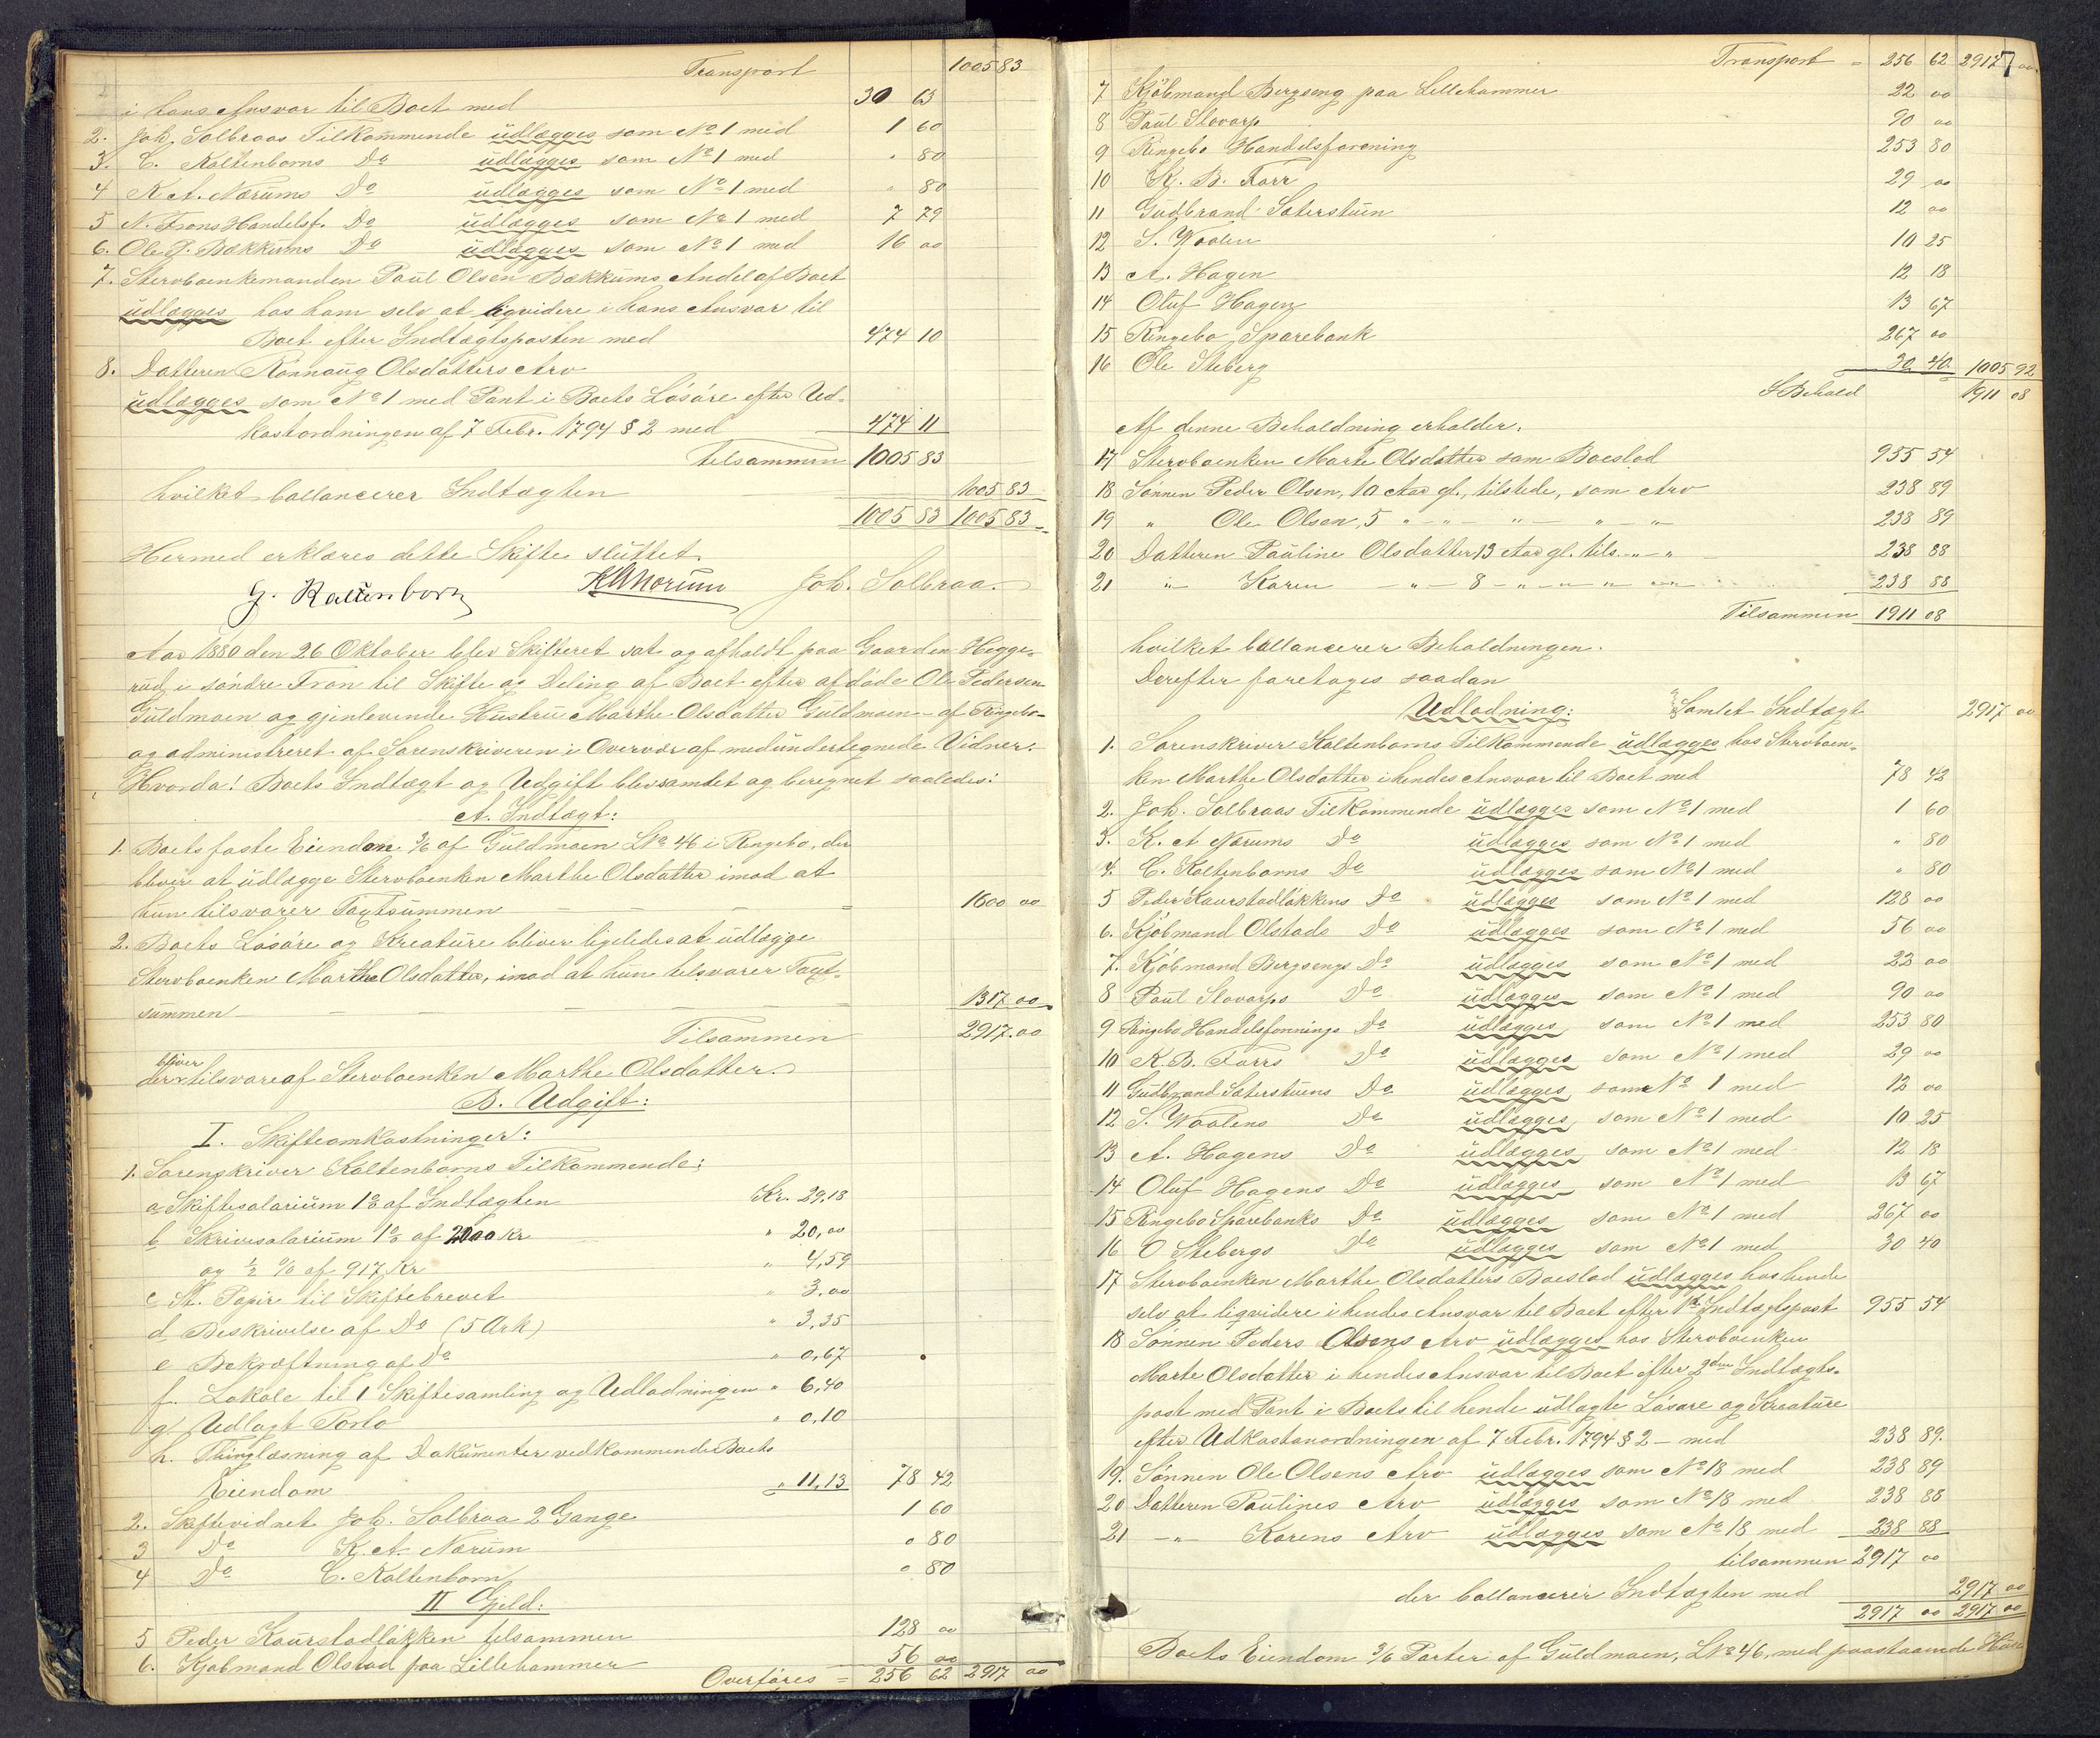 Transport 1005 83
i hans Ansvar til Boet med 30 63
2. Joh. Solbraas Tilkommende udlægges som No 1 med 1 60
3. C. Kaltenborns Do udlægges som No 1 med " 80
4 K. A. Norums Do udlægges som No 1 med " 80
5 N. Frons Handelsf. Do udlægges som No 1 med 7 79
6. Ole P. Bækkums Do udlægges som No 1 med 16 00
7. Stervboenkemanden Paul Olsen Bækkums Andel af Boet
udlægges hos ham selv at liqvidere i hans Ansvar til
Boet efter Indtægtsposten med 474 10
8. Datteren Rønnaug Olsdatters Arv
udlægges som No 1 med Pant i Boets Løsøre efter Ud-
kastordningen af 7 Febr. 1794 § 2 med 474 11
tilsammen 1005 83
hvilket ballancerer Indtægten 1005 83
1005 83 1005 83
Hermed erklæres dette Skifte sluttet.
G. Kaltenborn KANorum Joh. Solbraa.
Aar 1880 den 26 Oktober blev Skifteret sat og afholdt paa Gaarden Hegge-
rud i søndre Fron til Skifte og Deling af Boet efter afdøde Ole Pedersen
Guldmoen og gjenlevende Hustru Marthe Olsdatter Guldmoen - af Ringebo-
og administreret af Sorenskriveren i Overvær af medundertegnede Vidner.
Hvorda! Boets Indtægt og Udgift blev samlet og beregnet saaledes:
A. Indtægt:
1. Boets faste Eiendom 3/6 af Guldmoen LNo 46 i Ringebo, der
bliver at udlægge Stervboenken Marthe Olsdatter imod at
hun tilsvarer Taxtsummen 1600 00
2. Boets Løsøre og Kreature bliver ligeledes at udlægge
Stervboenken Marthe Olsdatter, imod at hun tilsvarer Taxt-
summen 1317 00
Tilsammen 2917.00
der bliver tilsvare af Stervboenken Marthe Olsdatter.
B. Udgift:
I. Skifteomkostninger:
1. Sorenskriver Kaltenborns Tilkommende:
a Skiftesalarium 1% af Indtægten Kr. 29,18
b Skriversalarium 1% af 2000 Kr " 20,00
og ½ % af 917 Kr " 4,59
c St. Papir til Skiftebrevet " 3,00
d Beskrivelse af Do (5 Ark) " 3,35
e Bekræftning af Do " 0,67
f. Lokale til 1 Skiftesamling og Udlodningen " 6,40
g Udlagt Porto " 0,10
h. Thinglæsning af Dokumenter vedkommende Boets
Eiendom " 11,13 78 42
2. Skiftevidnet Joh. Solbraa 2 Gange 1 60
3 Do K. A. Norum " 80
4 Do C. Kaltenborn " 80
II Gjeld:
5 Peder Kaurstadløkken tilsammen 128 00
6. Kjøbmand Olstad paa Lillehammer 56 00
Overføres = 256 62 2917 00
Transport = 256 62 2917 00
7 Kjøbmand Bergseng paa Lillehammer 22 00
8 Paul Stovarp 90 00
9 Ringebo Handelsforening 253 80
10 K. B. Forr 29 00
11 Gudbrand Sæterstuen 12 00
12 S. Waalen 10 25
13 A. Hagen 12 18
14 Oluf Hagen 13 67
15 Ringebo Sparebank 267 00
16 Ole Steberg 30 40 1005 92
I Behold 1911 08
Af denne Beholdning erholder:
17 Stervboenken Marte Olsdatter som Boeslod 955 54
18 Sønnen Peder Olsen, 10 Aar gl., tilstede, som Arv 238 89
19 " Ole Olsen, 5 " - " - " - " - " - 238 89
20 Datteren Pauline Olsdatter 13 Aar gl. tils. - " - " 238 88
21 " - Karen - " - 8 - " - " - " - " - 238 88
Tilsammen 1911 08
hvilket ballancerer Beholdningen.
Derefter foretages saadan
Udlodning: Samlet Indtægt 2917 00
1. Sorenskriver Kaltenborns Tilkommende udlægges hos Stervboen-
ken Marthe Olsdatter i hendes Ansvar til Boet med 78 42
2. Joh. Solbraas Tilkommende udlægges som No 1 med 1 60
3. K. A. Norums Do udlægges som No 1 med " 80
4. C. Kaltenborns Do udlægges som No 1 med " 80
5 Peder Kaurstadløkkens Do udlægges som No 1 med 128 00
6. Kjøbmand Olstads Do udlægges som No 1 med 56 00
7. Kjøbmand Bergsengs Do udlægges som No 1 med 22 00
8 Paul Stovarps Do udlægges som No 1 med 90 00
9 Ringebo Handelsfornings Do udlægges som No 1 med 253 80
10 K. B. Forrs Do udlægges som No 1 med 29 00
11 Gudbrand Sæterstuens Do udlægges som No 1 med 12 00
12 S. Waalens Do udlægges som No 1 med 10 25
13 A. Hagens Do udlægges som No 1 med 12 18
14 Oluf Hagens Do udlægges som No 1 med 13 67
15 Ringebo Sparebanks Do udlægges som No 1 med 267 00
16 O Stebergs Do udlægges som No 1 med 30 40
17 Stervboenken Marthe Olsdatters Boeslod udlægges hos hende
selv at liqvidere i hendes Ansvar til Boet efter 1st Indtægtspost 955 54
18 Sønnen Peders Olsens Arv udlægges hos Stervboenken
Marte Olsdatter i hendes Ansvar til Boet efter 2den Indtægts-
post med Pant i Boets til hende udlagte Løsøre og Kreature
efter Udkastanordningen af 7 Febr. 1794 § 2 - med 238 89.
19. Sønnen Ole Olsens Arv udlægges som No 18 med 238 89
20 Datteren Paulines Arv udlægges som No 18 med 238 88
21 - " - Karens Arv udlægges som No 18 med 238 88
tilsammen 2917 00
der ballancerer Indtægten med 2917 00
2917 00 2917 00
Boets Eiendom 3/6 Parter af Guldmoen, LNo 46, med paastaaende